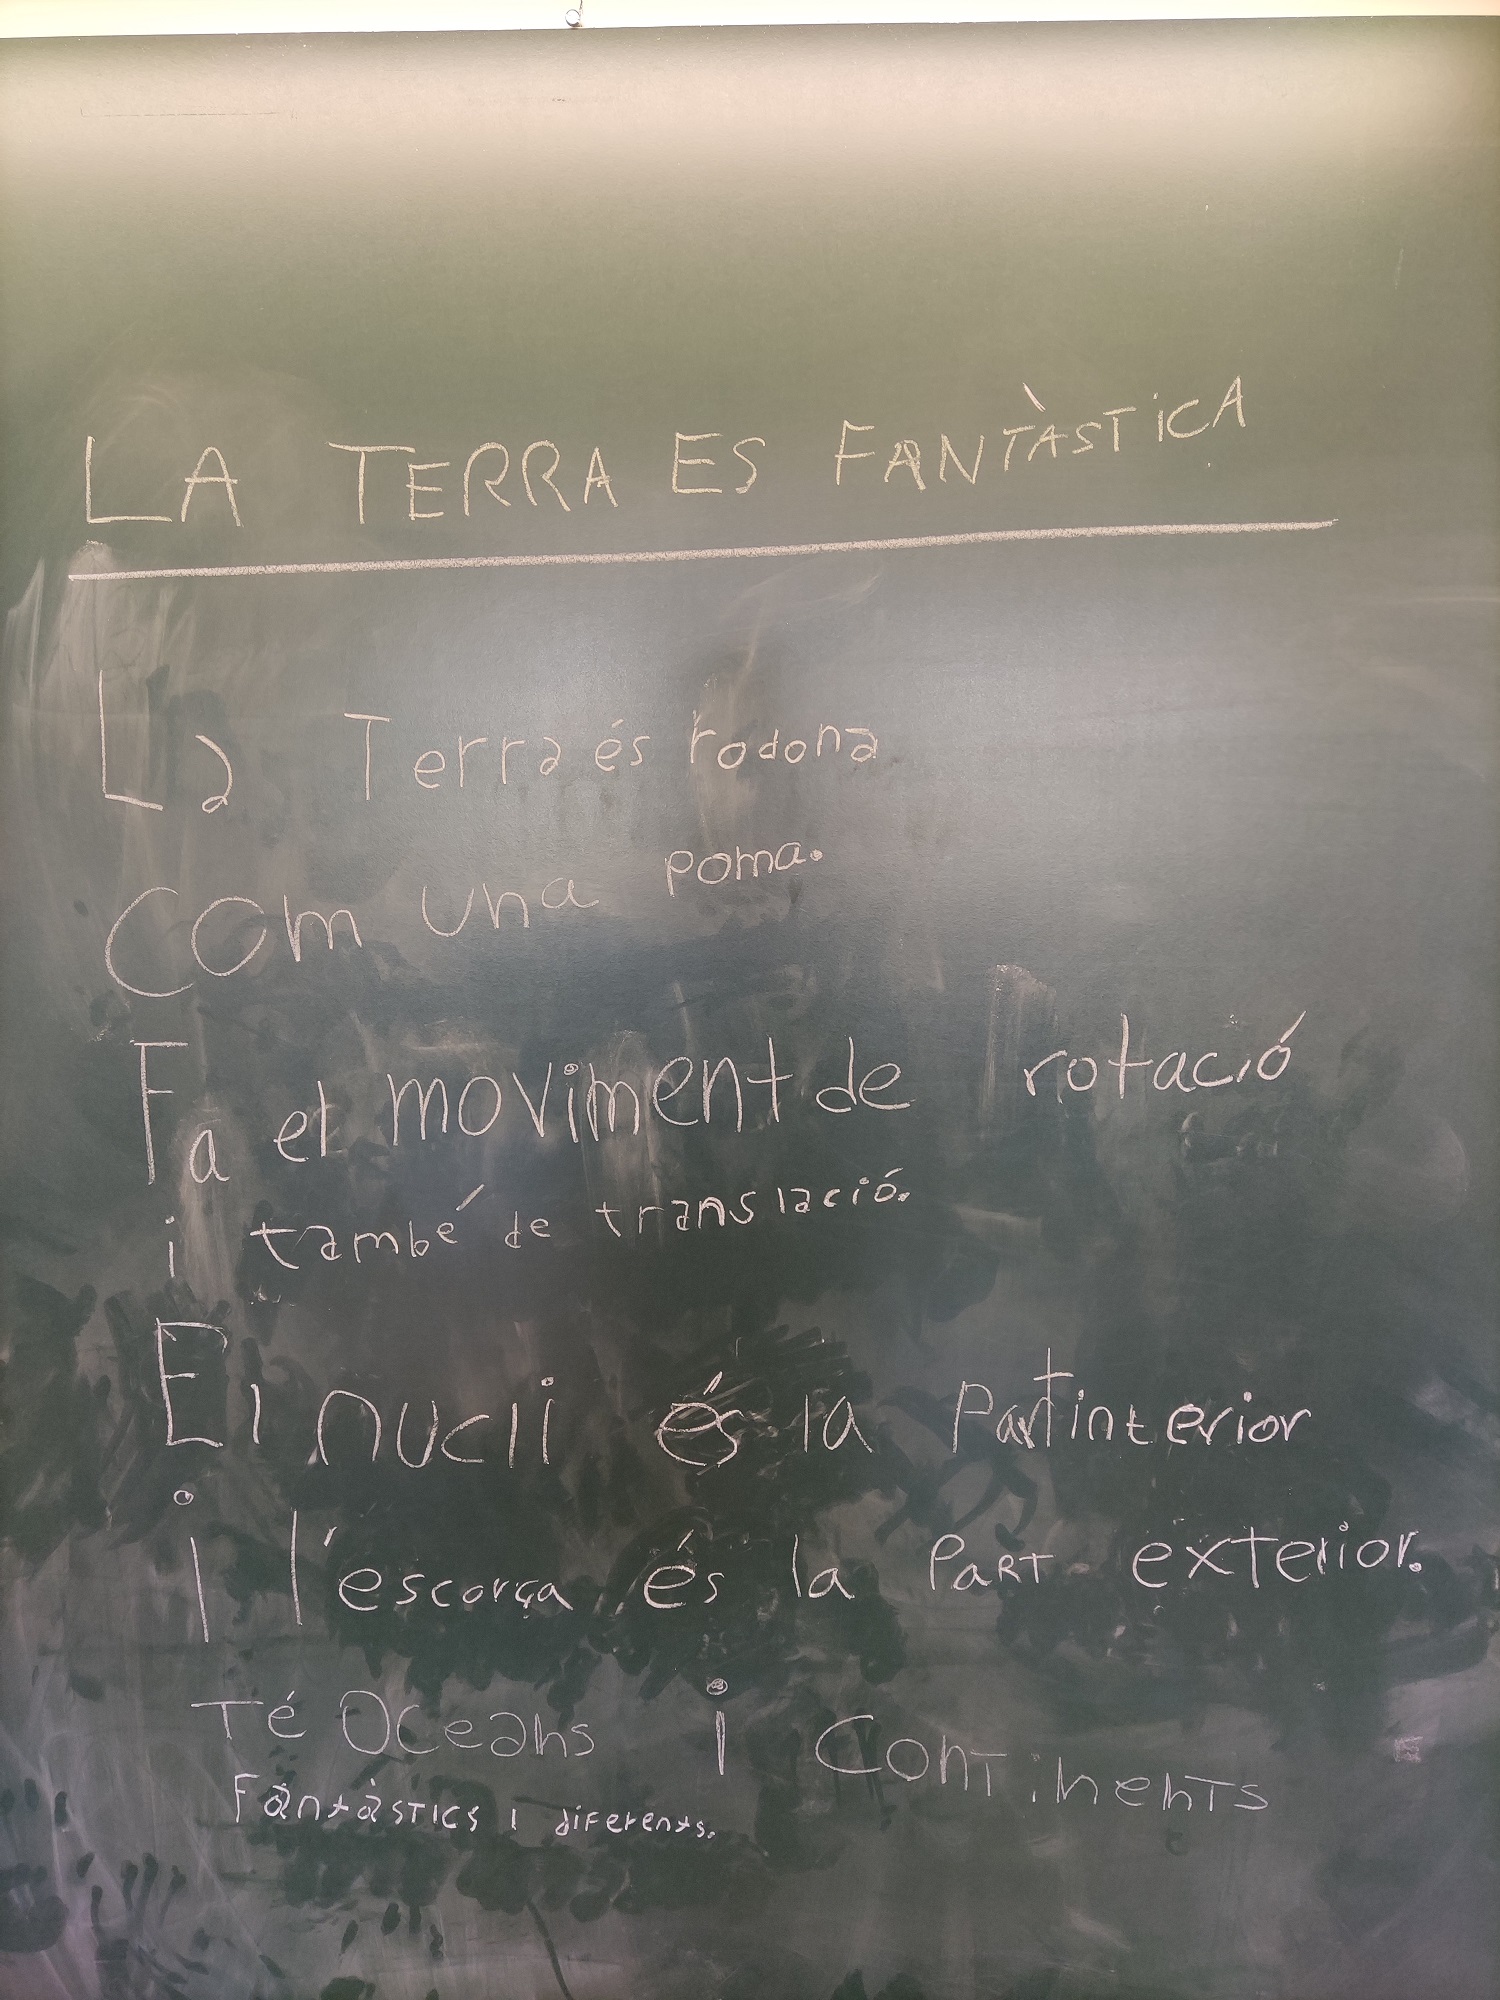 LA TERRA ES FANTÀSTICA
La Terra és rodona
com una poma.
Fa el moviment de rotació
i també de translació.
El nucli és la part interior
i l'escorça és la PART exterior.
Té Oceans i Continents
Fantàstics i diferents.